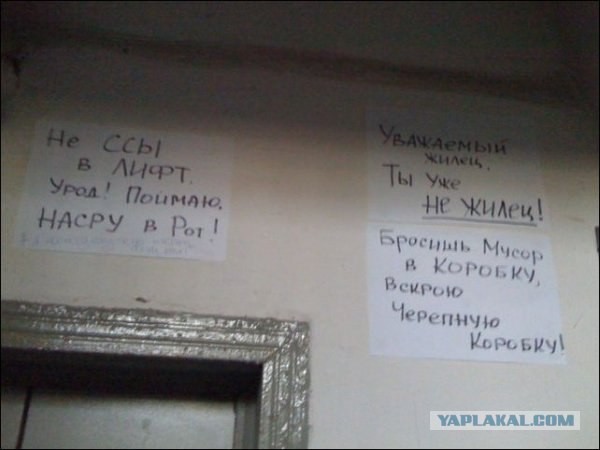 Не ССЫ
в ЛИФТ.
Урод! Поймаю,
НАСРУ в Рот!
Уважаемый
жилец.
Ты уже
НЕ ЖИЛЕЦ!
Бросишь Мусор
в коробку,
вскрою
Черепную
коробку!
YAPLAKAL.COM